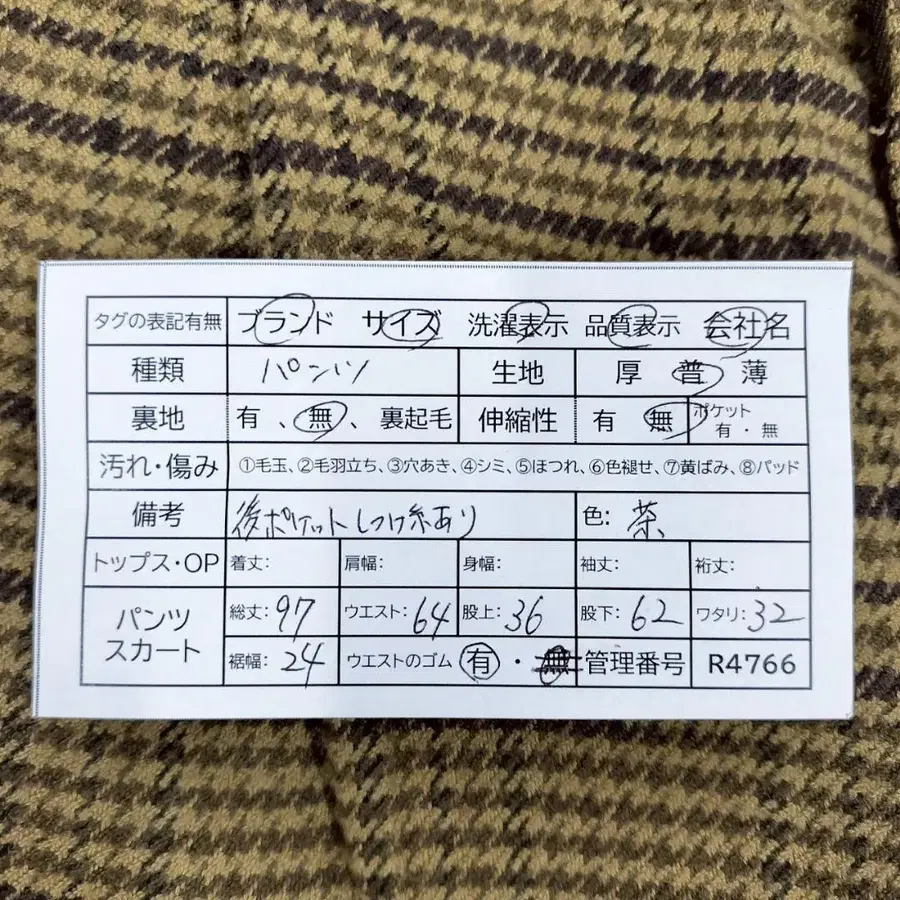 タグの表記有無 ブランド サイズ 洗濯表示 品質表示 会社名
種類 パンツ 生地 厚 普 薄
裏地 有 、無 、裏起毛 伸縮性 有 無 ポケット 有・無
汚れ・傷み ①毛玉、②毛羽立ち、③穴あき、④シミ、⑤ほつれ、⑥色褪せ、⑦黄ばみ、⑧パッド
備考 後ポケットしつけ糸あり 色: 茶
トップス・OP 着丈: 肩幅: 身幅: 袖丈: 裄丈:
パンツ スカート 総丈: 97 ウエスト: 64 股上: 36 股下: 62 ワタリ: 32
裾幅: 24 ウエストのゴム 有・無 管理番号 R4766